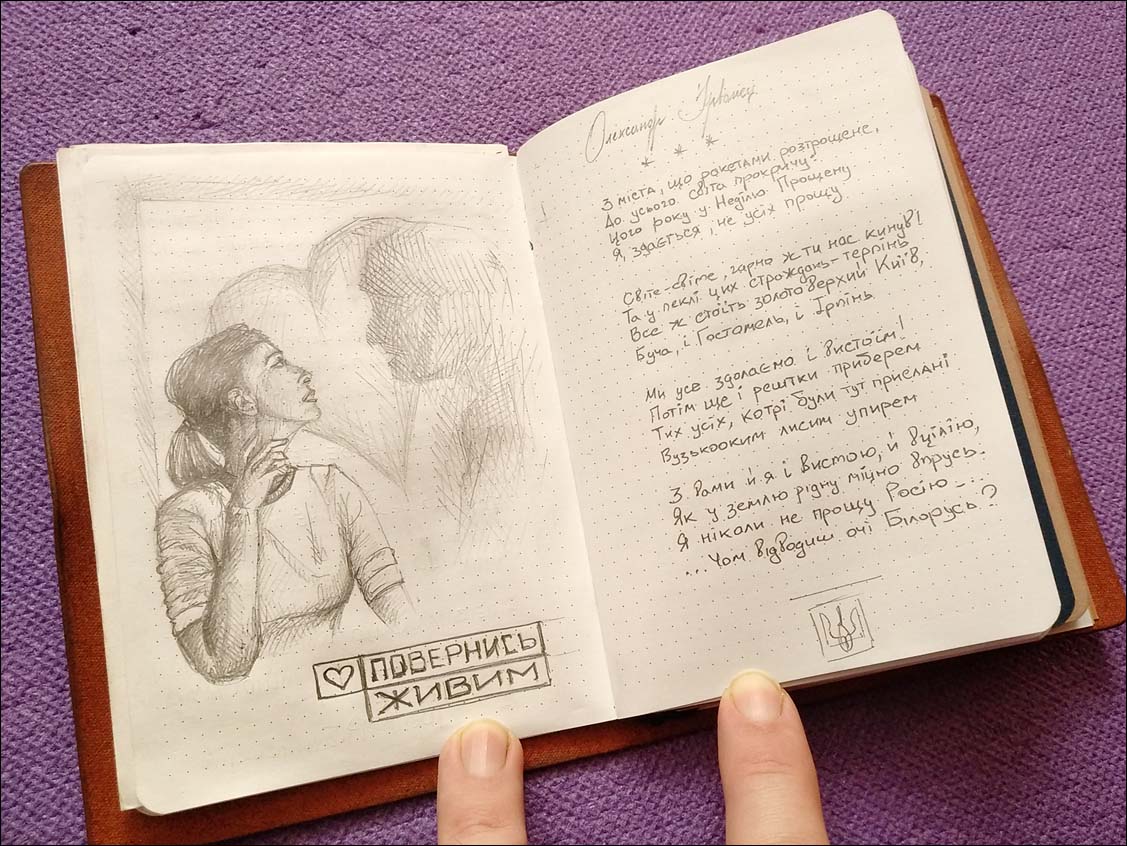 ПОВЕРНИСЬ
ЖИВИМ
Олександр Ірванець
* * *
З міста, що ракетами розтрощене,
До усього світа прокричу:
Цього року у Неділю Прощену
Я, здається, не усіх прощу.
Світе-світе, гарно ж ти нас кинув!
Та у пеклі цих страждань-терпінь
Все ж стоїть золотоверхий Київ,
Буча, і Гостомель, і Ірпінь.
Ми усе здолаємо і вистоїм!
Потім ще і рештки приберем
Тих усіх, котрі були тут прислані
Вузькооким лисим упирем
З вами й я і вистою, й вцілію,
Як у землю рідну міцно впрусь.
Я ніколи не прощу Росію...
...Чом відводиш очі Білорусь?